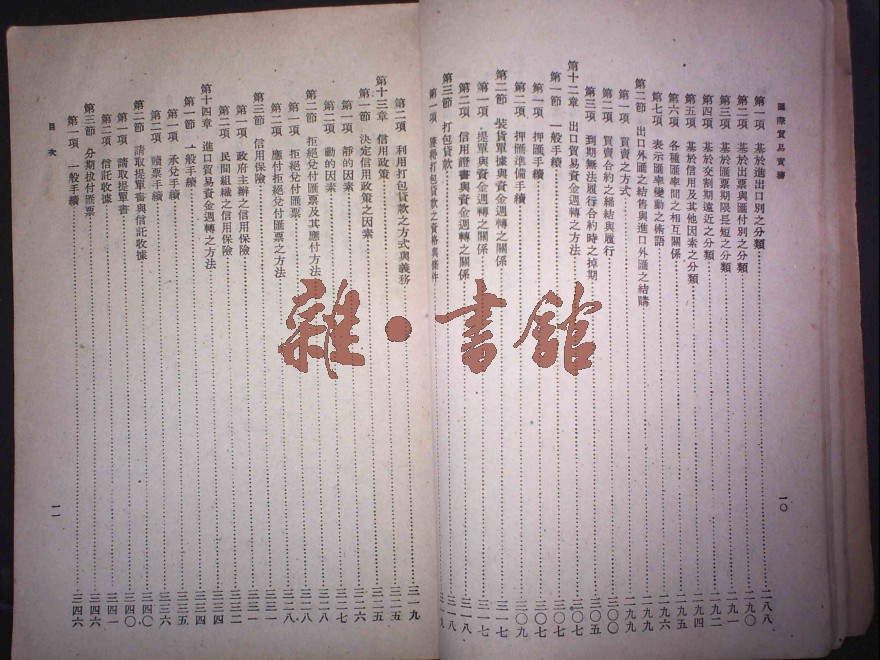 國際貿易實務 一〇
第一項 基於進出口別之分類……二八八
第二項 基於出票與匯付別之分類……二九〇
第三項 基於匯票期限長短之分類……二九一
第四項 基於交割期遠近之分類……二九二
第五項 基於信用及其他因素之分類……二九四
第六項 各種匯率間之相互關係……二九五
第七項 表示匯率變動之術語……二九六
第二節 出口外匯之結售與進口外匯之結購……二九九
第一項 買賣之方式……二九九
第二項 買賣合約之締結與履行……三〇〇
第三項 到期無法履行合約時之掉期……三〇五
第十二章 出口貿易資金週轉之方法……三〇七
第一節 一般手續……三〇七
第一項 押匯手續……三〇七
第二項 押匯準備手續……三〇九
第二節 裝貨單據與資金週轉之關係……三一七
第一項 提單與資金週轉之關係……三一七
第二項 信用證書與資金週轉之關係……三一八
第三節 打包貸款……三一八
第一項 獲得打包貸款之資格與條件……三一九
第二項 利用打包貸款之方式與義務……三一九
第十三章 信用政策……三二五
第一節 決定信用政策之因素……三二五
第一項 靜的因素……三二六
第二項 動的因素……三二七
第二節 拒絕兌付匯票及其應付方法……三二八
第一項 拒絕兌付匯票……三二八
第二項 應付拒絕兌付匯票之方法……三二八
第三節 信用保險……三三一
第一項 政府主辦之信用保險……三三一
第二項 民間組織之信用保險……三三二
第十四章 進口貿易資金週轉之方法……三三四
第一節 一般手續……三三四
第一項 承兌手續……三三五
第二項 贖票手續……三三六
第二節 請取提單書與信託收據……三四〇
第一項 請取提單書……三四〇
第二項 信託收據……三四一
第三節 分期拔付匯票……三四六
第一項 一般手續……三四六
目次 一一
雜·書館